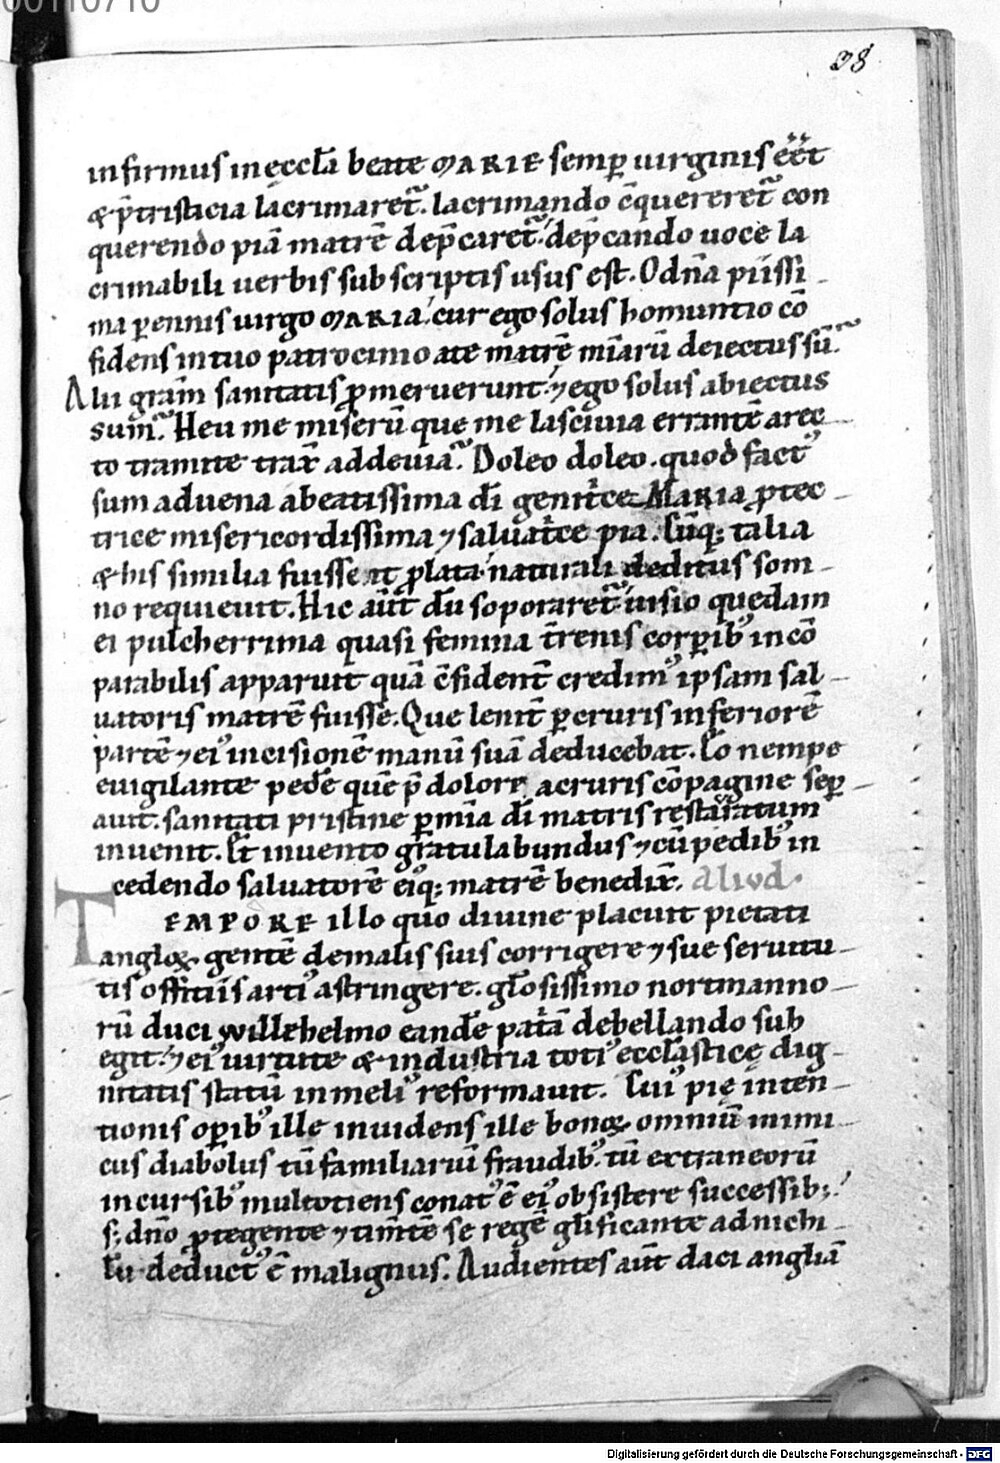 00110710
38
infirmus in ęccła beate MARIE semp uirginis eēt
& p̄tristicia lacrimaret᷑. lacrimando c̄quereret᷑ con
querendo piā matrē dep̄caret᷑. dep̄cando uoce la
crimabili uerbis subscriptis usus est. O dña piissi-
ma pennis uirgo MARIA. cur ego solus homuntio cō
fidens in tuo patrocinio a te matrē miaꝝ̄ deiectus sū.
Alii grām sanitatis pmeruerunt. ⁊ ego solus abiectus
sum. Heu me miserū que me lasciuia errantē a rec-
to tramite trax̄ ad deuia. Doleo doleo. quod factꝰ
sum aduena a beatissima dī genitce MARIA ptec-
trice misericordissima ⁊ saluatce pia. Cūq; talia
& his similia fuissent plata. naturali deditus som-
no requieuit. Hic aūt dū soporaret᷑ uisio quedam
ei pulcherrima quasi femina trenis corpibꝰ incō
parabilis apparuit quā c̄fident̄ credimꝰ ipsam sal-
uatoris matrē fuisse. Que lenit̄ p cruris inferiorē
partē ⁊ eiꝰ incisionē manū suā deducebat. Eo nempe
euigilante pedē quē p̄ dolore ac ruris cōpagine sep-
auit. sanitati pristine p mīa dī matris restauratum
inuenit. Et inuento gratulabundus ⁊ cū pedibꝰ in
cedendo saluatorē eiꝰq; matrē benedix̄. Aliud.
TEMPORE illo quo diuine placuit pietati
angloꝝ gentē de malis suis corrigere ⁊ sue seruitu-
tis offitiis artiꝰ astringere. glosissimo nortmanno-
rū duci willehelmo eandē patā debellando sub
egit. ⁊ eiꝰ uirtute & industria totiꝰ ecclastice dig-
nitatis statū in meliꝰ reformauit. Cuiꝰ pię inten-
tionis opibꝰ ille inuidens ille bonoꝝ omniū inimi-
cus diabolus tū familiariū fraudibꝰ. tū extraneorū
incursibꝰ multotiens conatꝰ ē eiꝰ obsistere successib;.
s; dño ptegente ⁊ timtē se regē glificante ad nichi-
lū deductꝰ ē malignus. Audientes aūt daci angliā
Digitalisierung gefördert durch die Deutsche Forschungsgemeinschaft - DFG